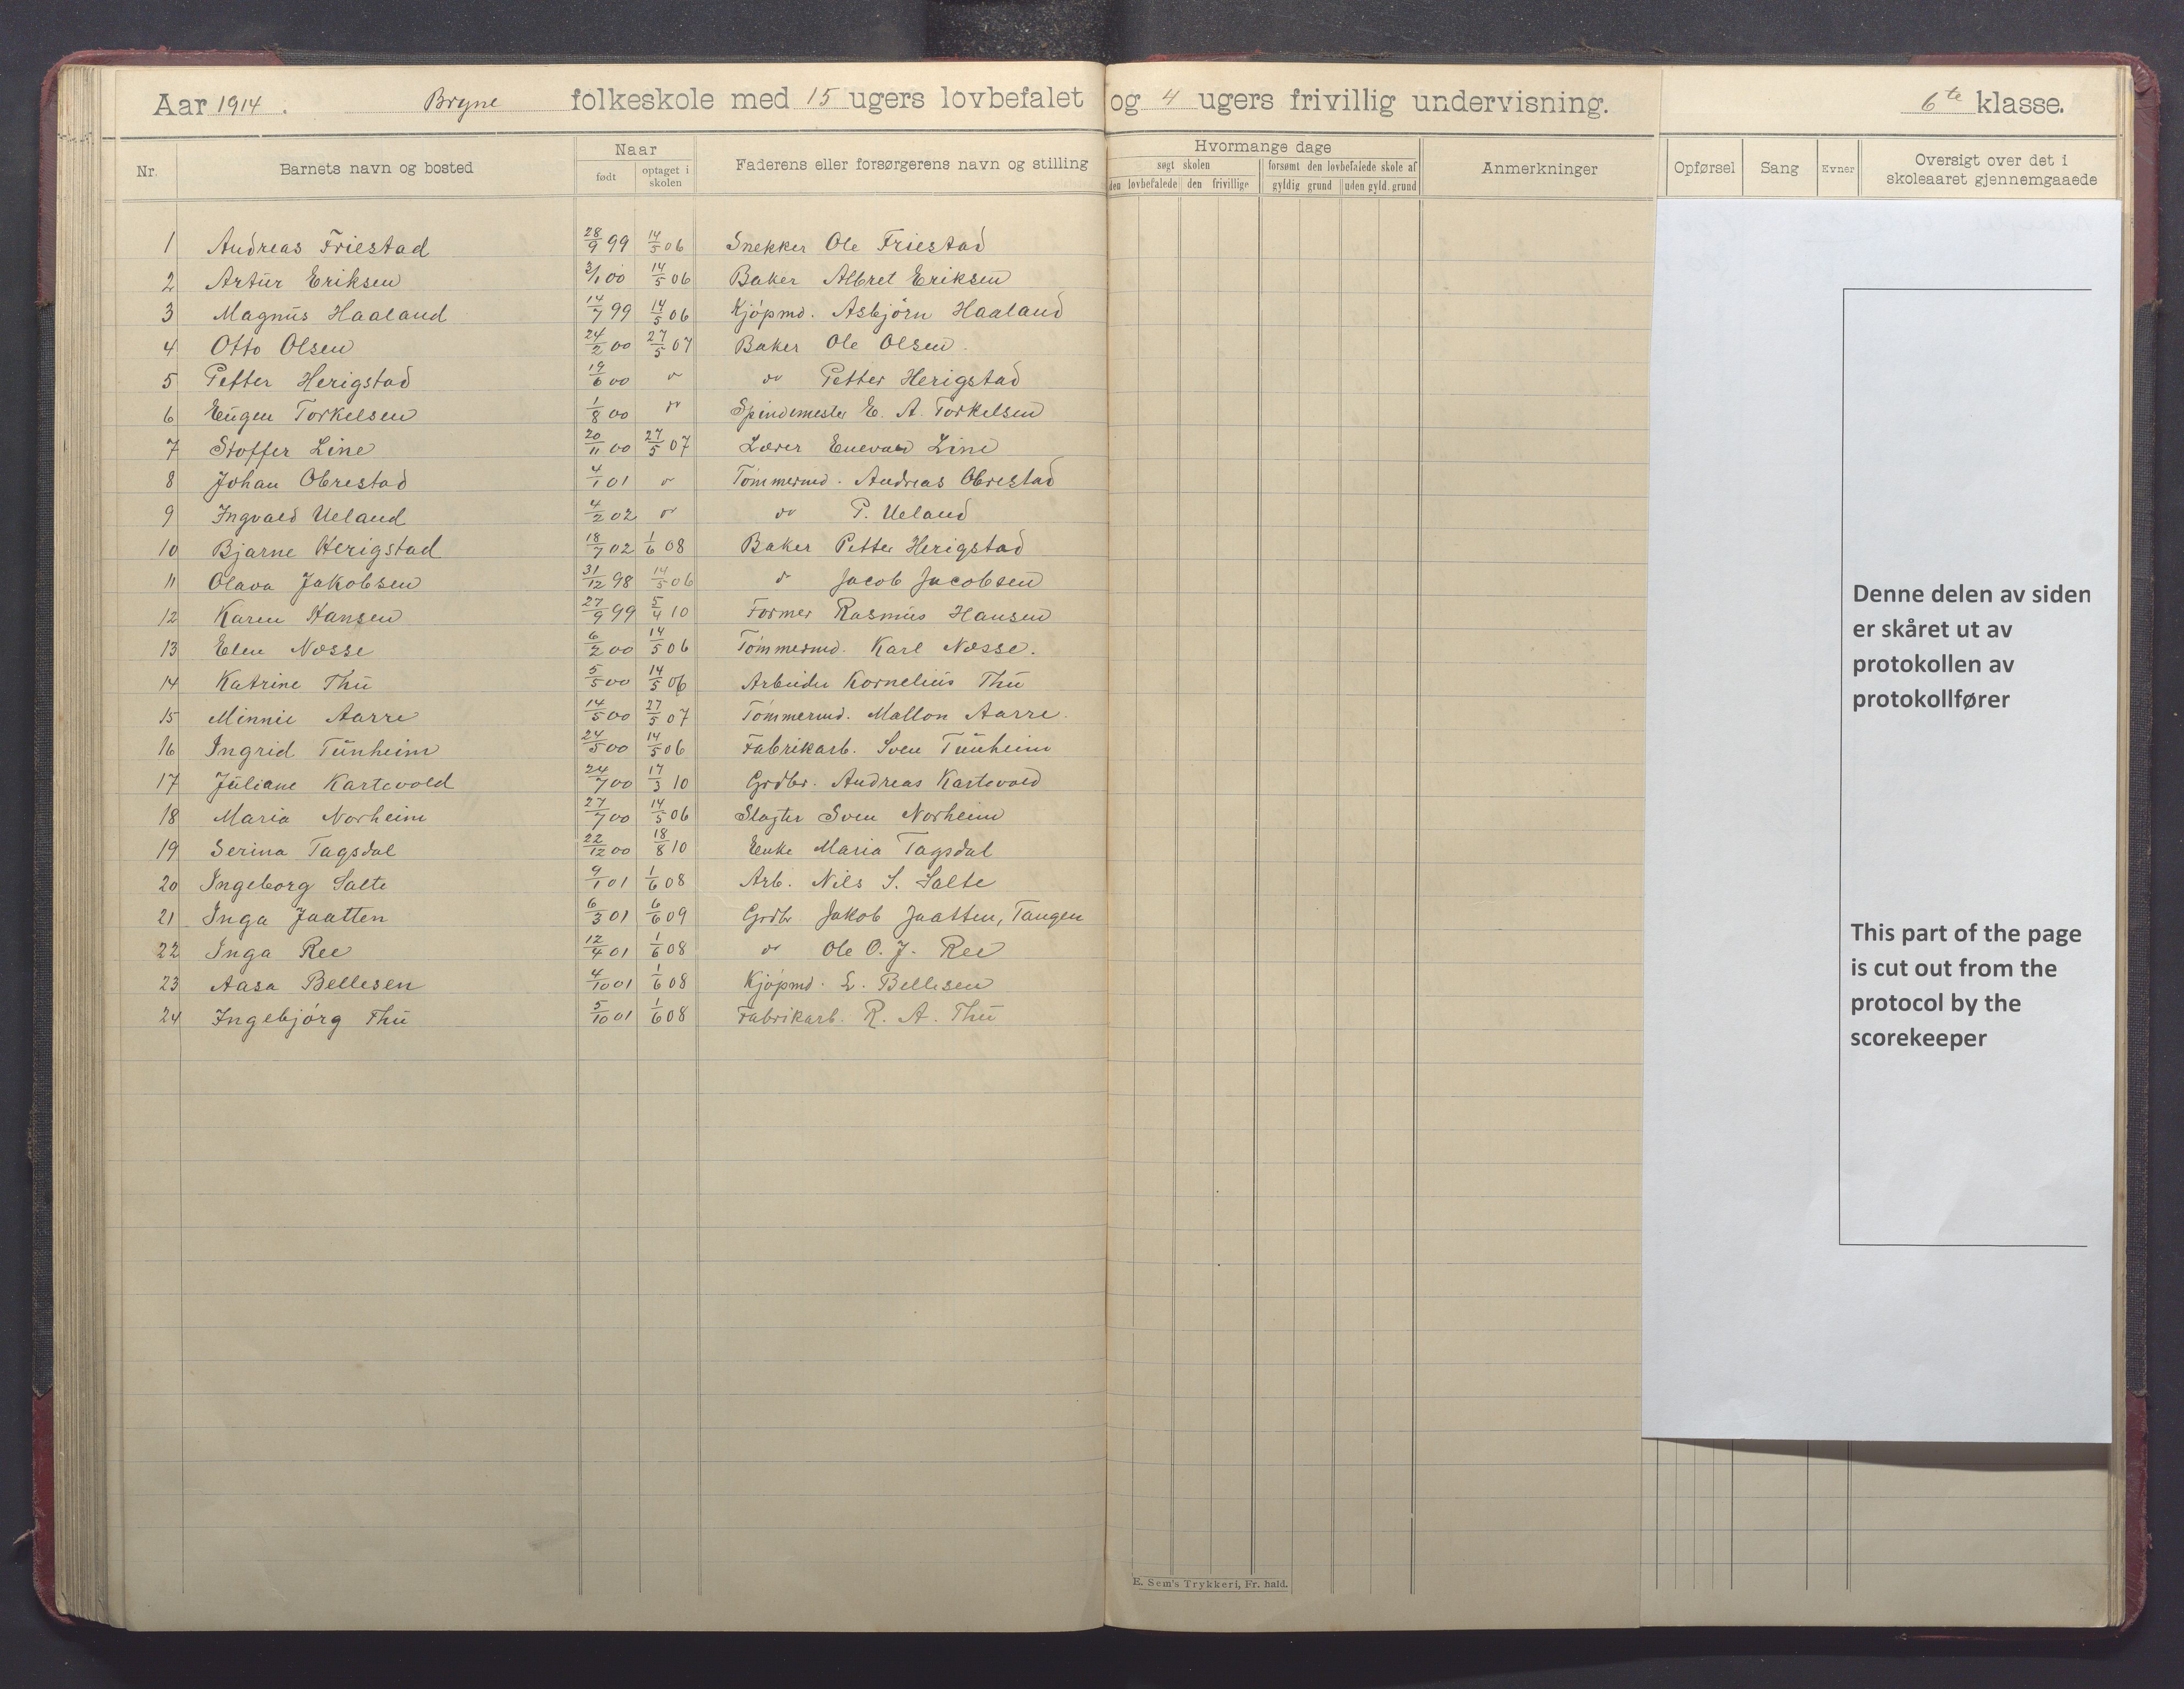 Aar 1914. Bryne folkeskole med 15 ugers lovbefalet og 4 ugers frivillig undervisning. 6te klasse.
Nr. Barnets navn og bosted Naar født optaget i skolen Faderens eller forsørgerens navn og stilling Hvormange dage søgt skolen den lovbefalede den frivillige forsømt den lovbefalede skole af gyldig grund uden gyld. grund Anmerkninger Opførsel Sang Evner Oversigt over det i skoleaaret gjennemgaaede
1 Andreas Friestad 28/9 99 14/5 06 Snekker Ole Friestad
2 Artur Eriksen 3/1 00 14/5 06 Baker Albret Eriksen
3 Magnus Haaland 14/7 99 14/5 06 Kjöpmd. Asbjörn Haaland
4 Otto Olsen 24/2 00 27/5 07 Baker Ole Olsen.
5 Petter Herigstad 19/6 00 " do Petter Herigstad
6 Eugen Torkelsen 1/8 00 " Spindemester E. A. Torkelsen
7 Stoffer Line 20/11 00 27/5 07 Lærer Enevald Line
8 Johan Obrestad 4/1 01 " Tömmermd. Andreas Obrestad
9 Ingvald Ueland 4/2 02 " do P. Ueland
10 Bjarne Herigstad 18/7 02 1/6 08 Baker Petter Herigstad
11 Olava Jakobsen 31/12 98 14/5 06 do Jacob Jacobsen
12 Karen Hansen 27/9 99 5/4 10 Former Rasmus Hansen
13 Elen Næsse 6/2 00 14/5 06 Tömmermd. Karl Næsse.
14 Katrine Thu 5/5 00 14/5 06 Arbeider Kornelius Thu
15 Minnie Aarre 14/5 00 27/5 07 Tömmermd. Mallon Aarre.
16 Ingrid Tunheim 24/5 00 14/5 06 Fabrikarb. Sven Tunheim
17 Juliane Kartevold 24/7 00 17/3 10 Grdbr. Andreas Kartevold
18 Maria Norheim 27/7 00 14/5 06 Slagter Sven Norheim
19 Serina Tagsdal 22/12 00 18/8 10 Enke Maria Tagsdal
20 Ingeborg Salte 9/1 01 1/6 08 Arb. Nils S. Salte
21 Inga Jaatten 6/3 01 6/6 09 Grdbr Jakob Jaatten, Tangen
22 Inga Ree 12/4 01 1/6 08 do Ole O. J. Ree
23 Aasa Bellesen 4/10 01 1/6 08 Kjöpmd. L. Bellesen
24 Ingebjörg Thu 5/10 01 1/6 08 Fabrikarb. R. A. Thu
Denne delen av siden
er skåret ut av
protokollen av
protokollfører
This part of the page
is cut out from the
protocol by the
scorekeeper
E. Sem's Trykkeri, Fr. hald.